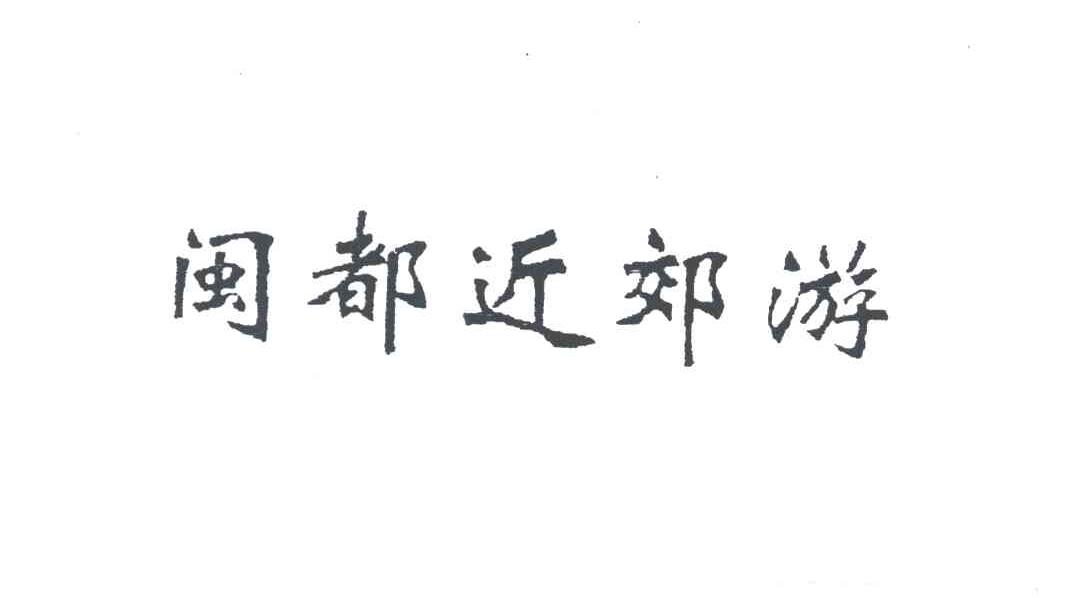 闽都近郊游